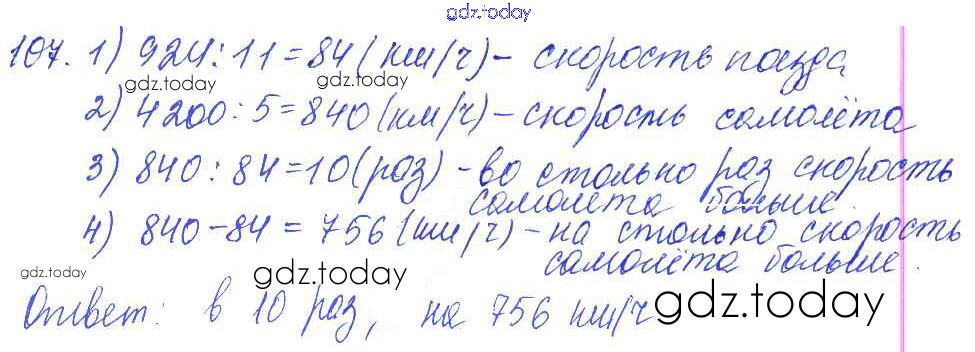 gdz.today
107. 1) 924 : 11 = 84 (км/ч) - скорость поезда
gdz.today
gdz.today
2) 4200 : 5 = 840 (км/ч) - скорость самолёта
3) 840 : 84 = 10 (раз) - во столько раз скорость
самолёта больше.
4) 840 - 84 = 756 (км/ч) - на столько скорость
самолёта больше.
gdz.today
gdz.today
Ответ: в 10 раз, на 756 км/ч
gdz.today